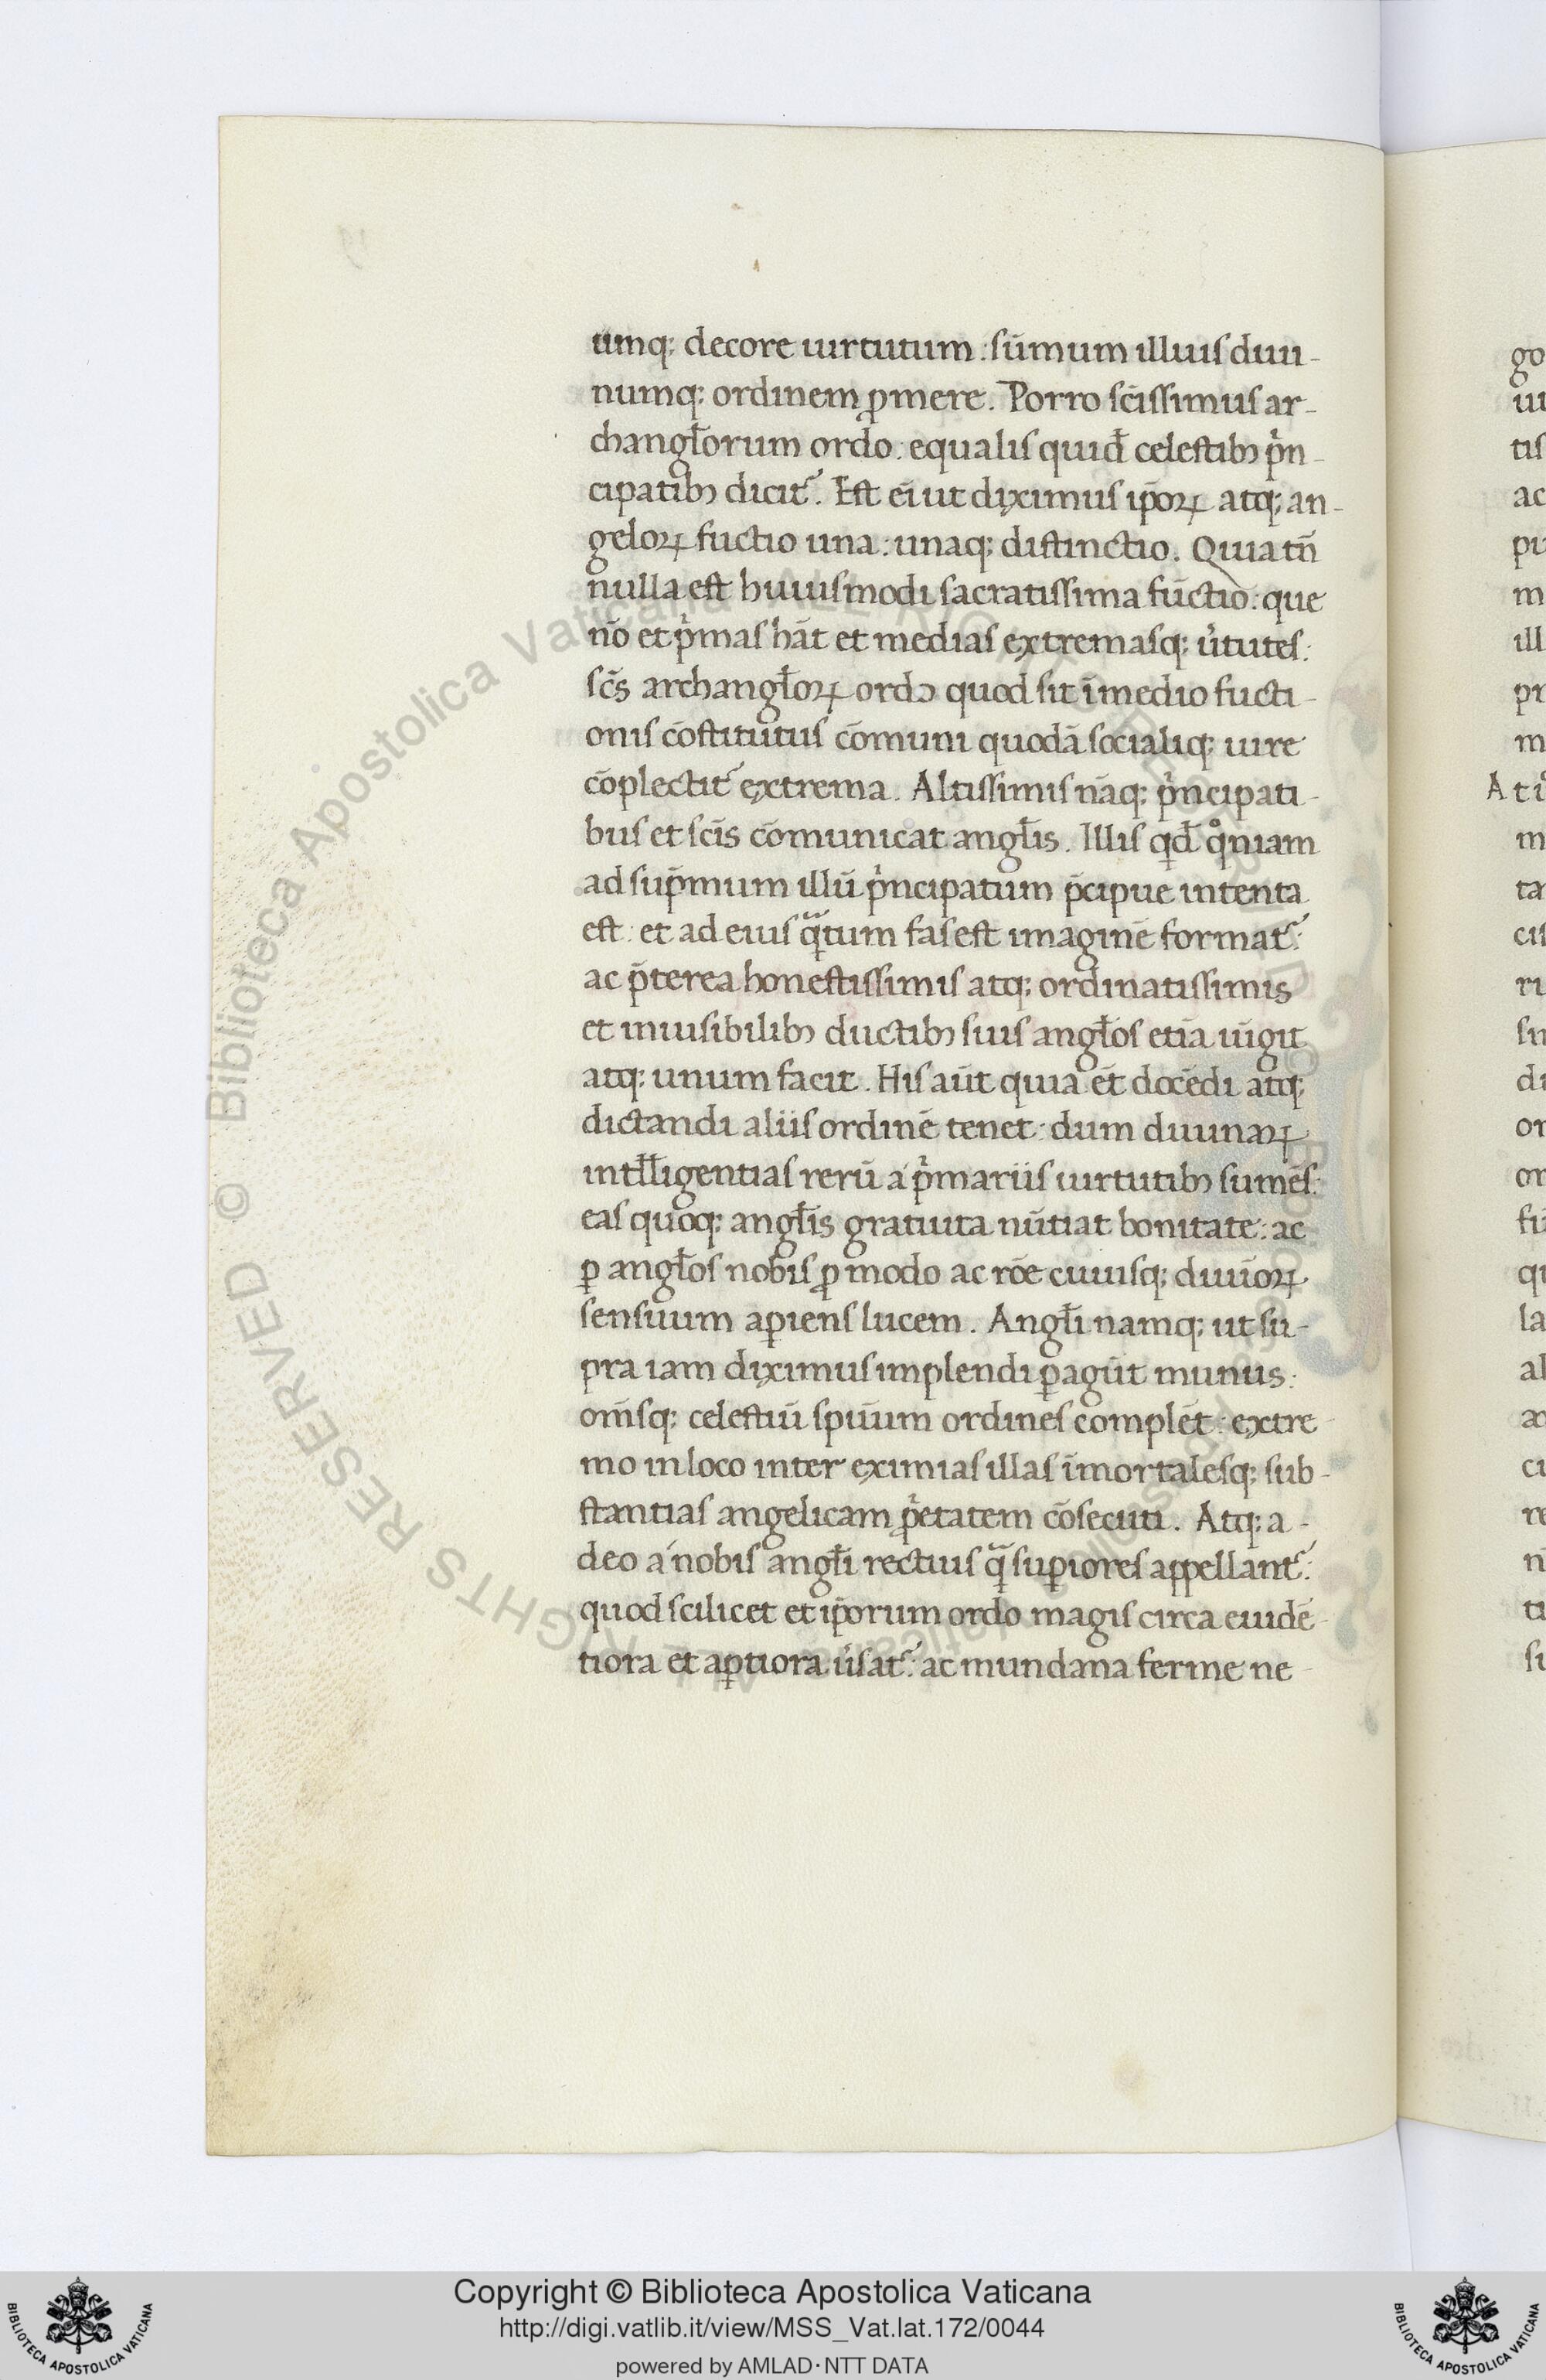 timq; decore uirtutum : sūmum illius diui-
numq; ordinem ꝓmere. Porro scīssimus ar-
changl̄orum ordo : equalis quid̄ celestibꝫ pͥn-
cipatibꝫ dicit᷑. Est eī ut diximus ip̄oꝝ atq; an-
geloꝝ fuctio una : unaq; distinctio. Quia tn̄
nulla est huiusmodi sacratissima fūctio : que
nō et pͥmas hāt et medias extremasq; uͥtutes :
sc̄s archangl̄oꝝ ordo quod sit ī medio fucti-
onis cōstitutus cōmuni quodā socialiq; iure
cōplectit᷑ extrema. Altissimis nāq; pͥncipati-
bus et scīs cōmunicat angl̄is. Illis qd̄ qͦniam
ad sup̄mum illū pͥncipatum p̄cipue intenta
est : et ad eius qᷓtum fas est imaginē format᷑ :
ac p̄terea honestissimis atq; ordinatissimis
et inuisibilibꝫ ductibꝫ suis angl̄os etiā iūgit
atq; unum facit. His aūt quia et̄ docēdi atq;
dictandi aliis ordinē tenet : dum diuinaꝝ
intl̄l̄igentias rerū a pͥmariis uirtutibꝫ sumēs :
eas quoq; angl̄is gratuita nūtiat bonitate : ac
ꝑ angl̄os nobis ꝓ modo ac rōe cuiusq; diuīoꝝ
sensuum aꝑiens lucem. Angl̄i namq; ut su-
pra iam diximus implendi ꝑagūt munus :
om̄sq; celestiū spūum ordines complēt : extre-
mo in loco inter eximias illas īmortalesq; sub-
stantias angelicam ꝓpͥetatem cōsecuti. Atq; a-
deo a nobis angl̄i rectius qᷓ suꝑiores appellant᷑ :
quod scilicet et ip̄orum ordo magis circa euidē-
tiora et aꝑtiora uͥsat᷑ : ac mundana ferme ne-
© Biblioteca Apostolica Vaticana ALL RIGHTS RESERVED
Copyright © Biblioteca Apostolica Vaticana
http://digi.vatlib.it/view/MSS_Vat.lat.172/0044
powered by AMLAD·NTT DATA
BIBLIOTECA APOSTOLICA VATICANA
BIBLIOTECA APOSTOLICA VATICANA